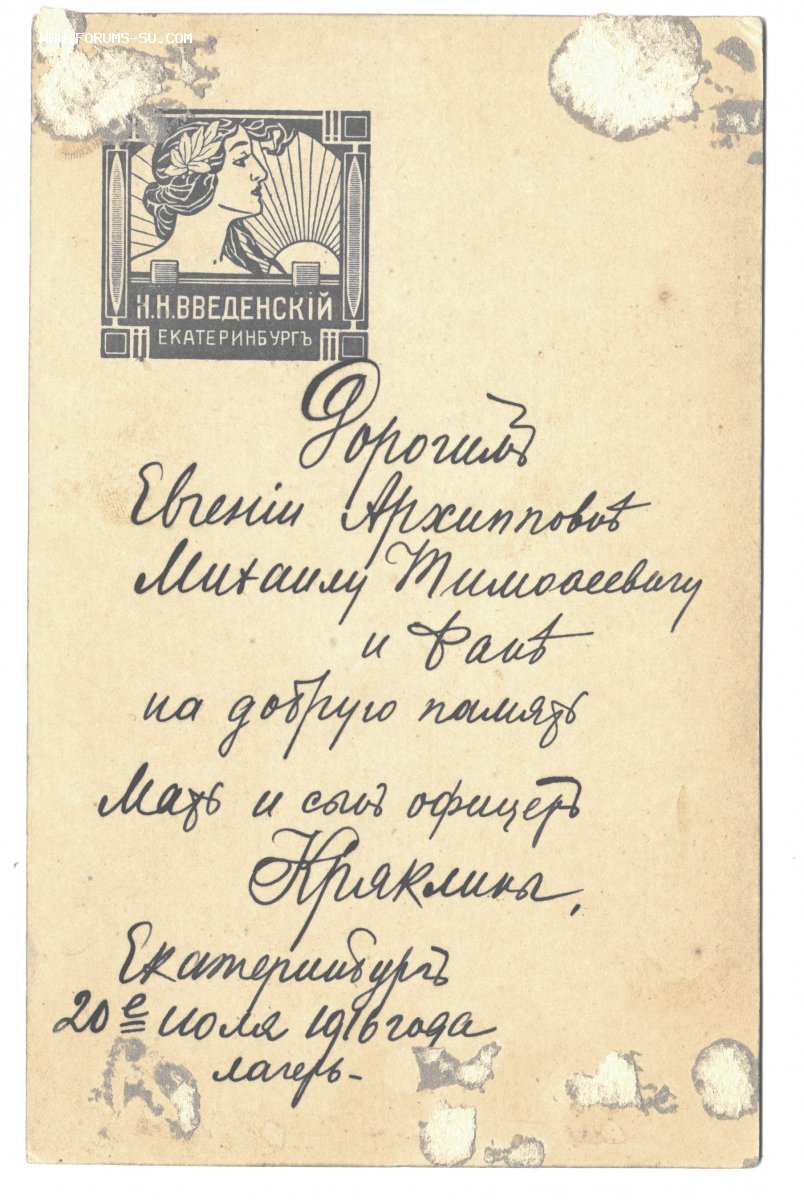 WWW.FORUMS-SU.COM
Н.Н.ВВЕДЕНСКІЙ
ЕКАТЕРИНБУРГЪ
Дорогимъ
Евгеніи Архипповнѣ
Михаилу Тимоѳеевичу
и Фанѣ
на добрую память
Мать и сынъ офицеръ
Кряклины,
Екатеринбургъ
20е июля 1916 года
лагерь-